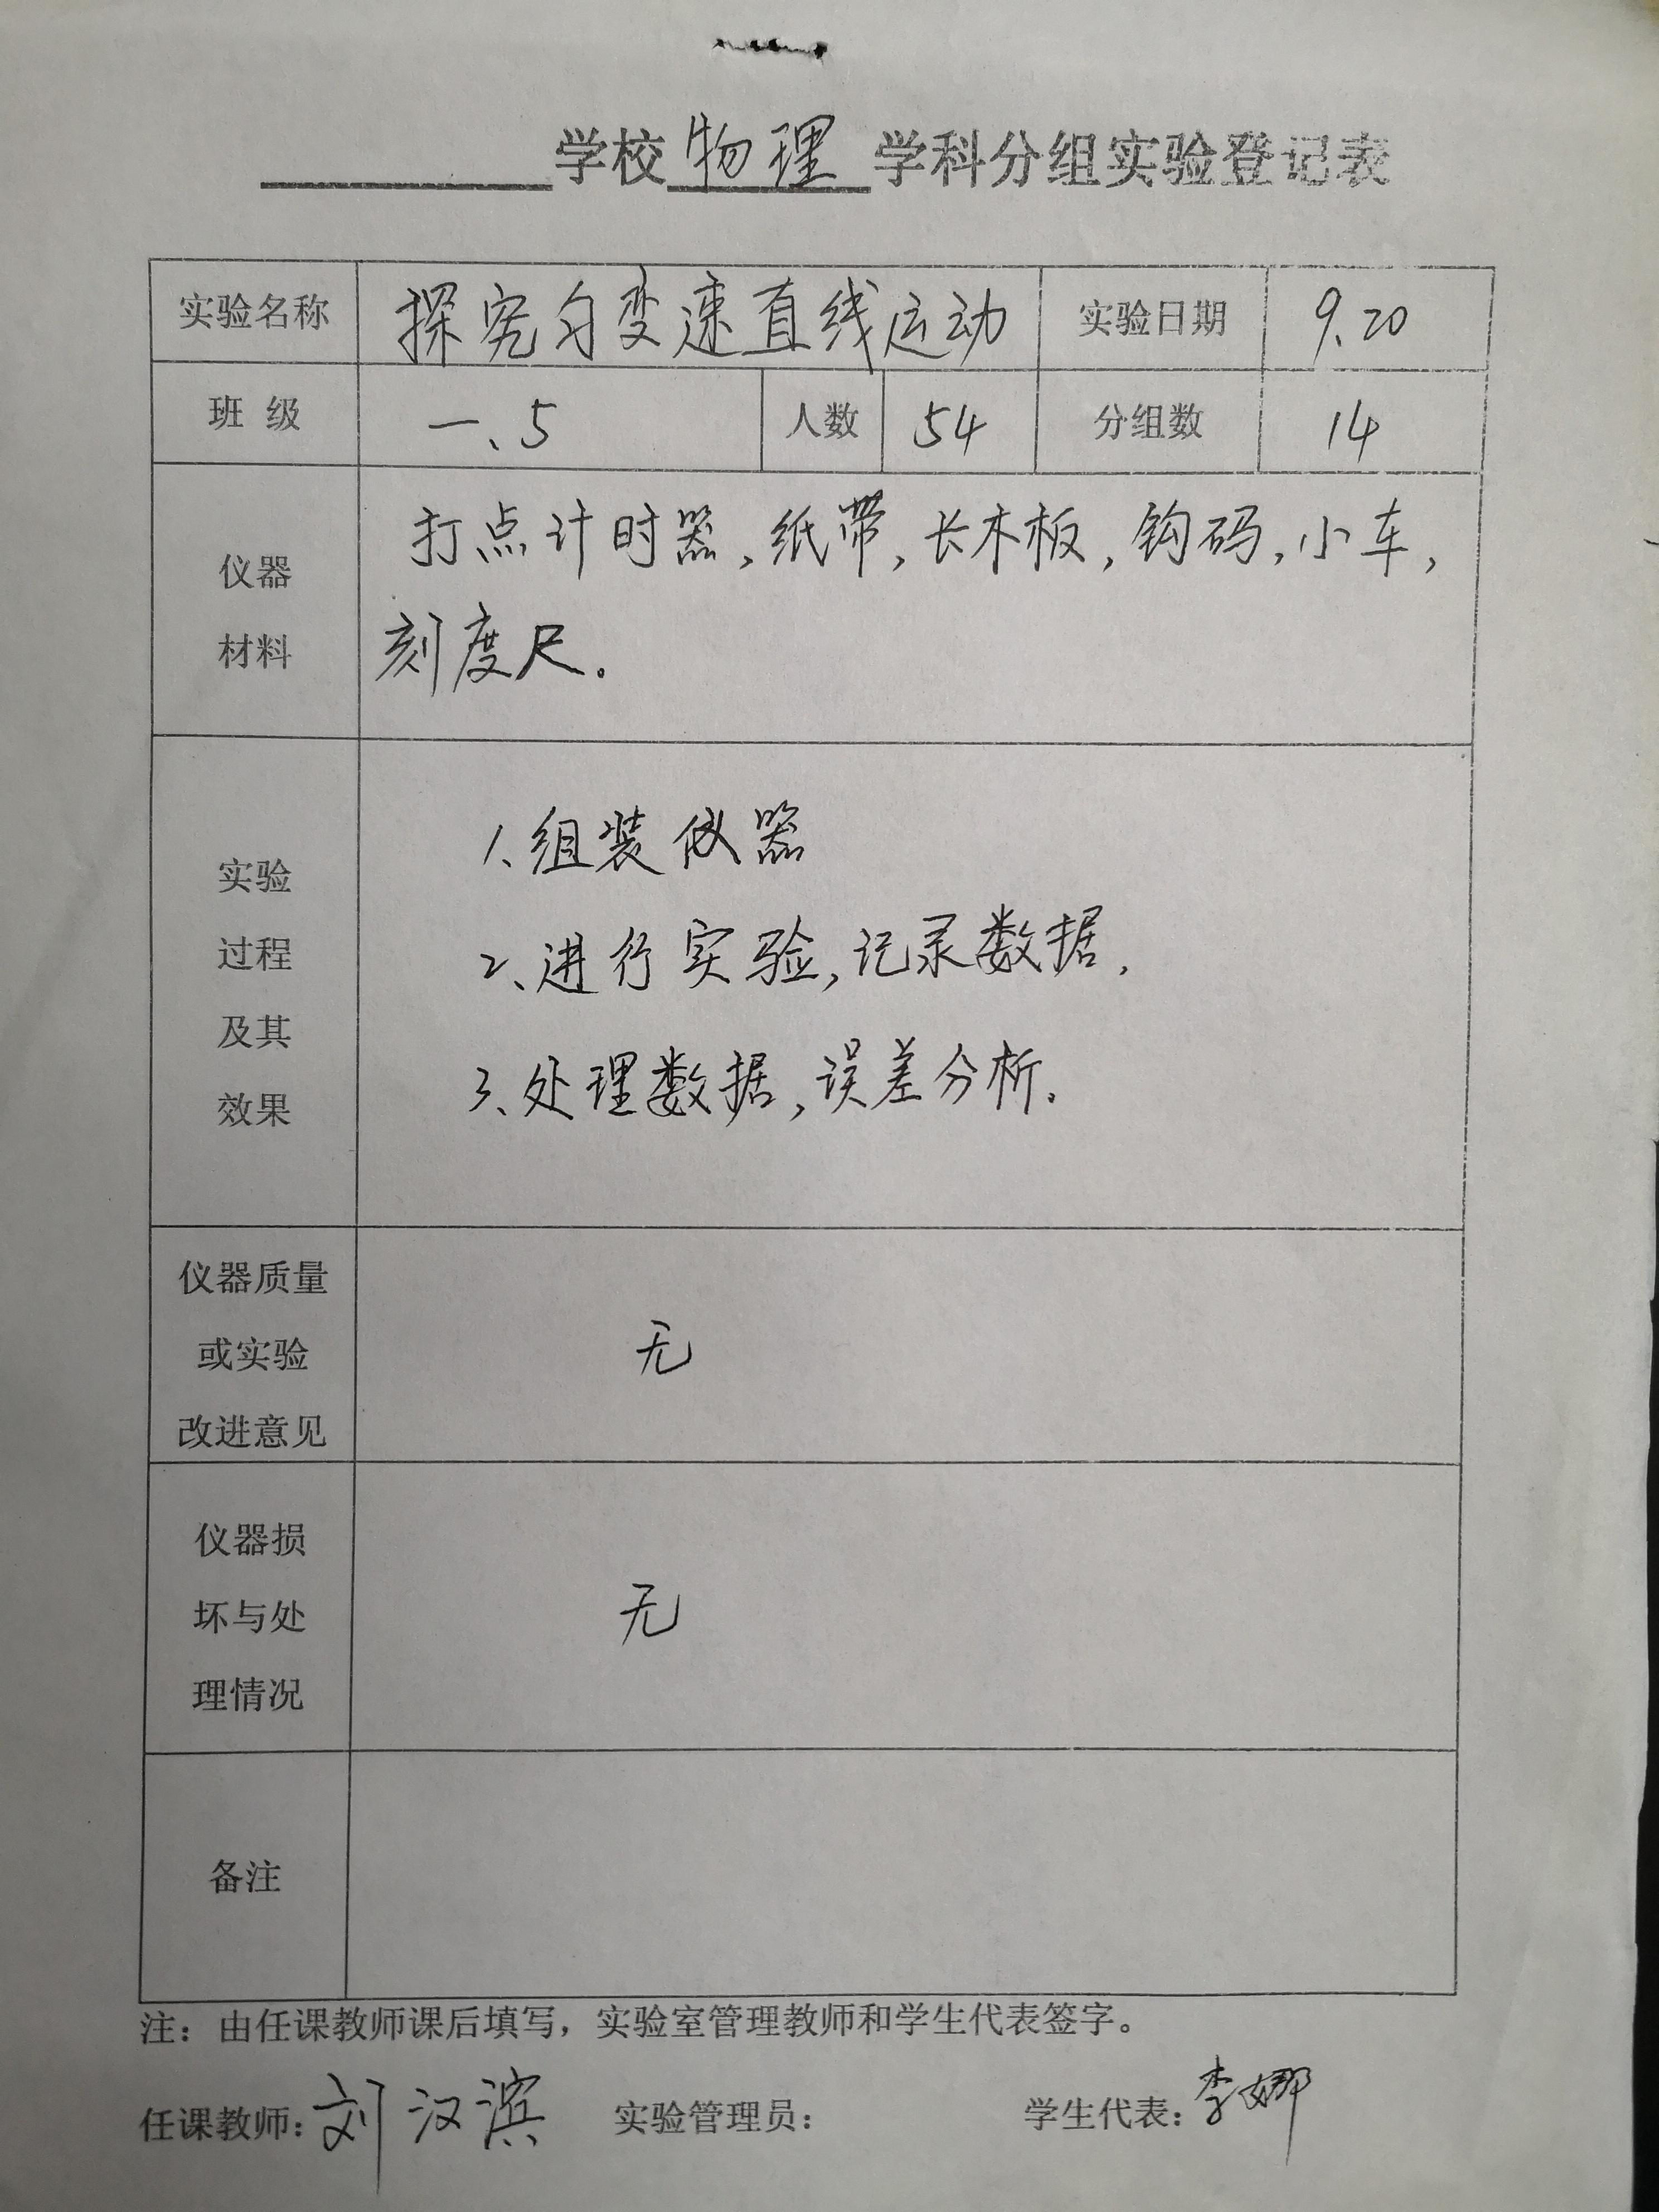 学校物理学科分组实验登记表
实验名称 探究匀变速直线运动 实验日期 9.20
班级 一、5 人数 54 分组数 14
仪器
材料
打点计时器,纸带,长木板,钩码,小车,
刻度尺.
实验
过程
及其
效果
1、组装仪器
2、进行实验,记录数据.
3、处理数据,误差分析.
仪器质量
或实验
改进意见
无
仪器损
坏与处
理情况
无
备注
注：由任课教师课后填写，实验室管理教师和学生代表签字。
任课教师：刘汉滨 实验管理员： 学生代表：李娜